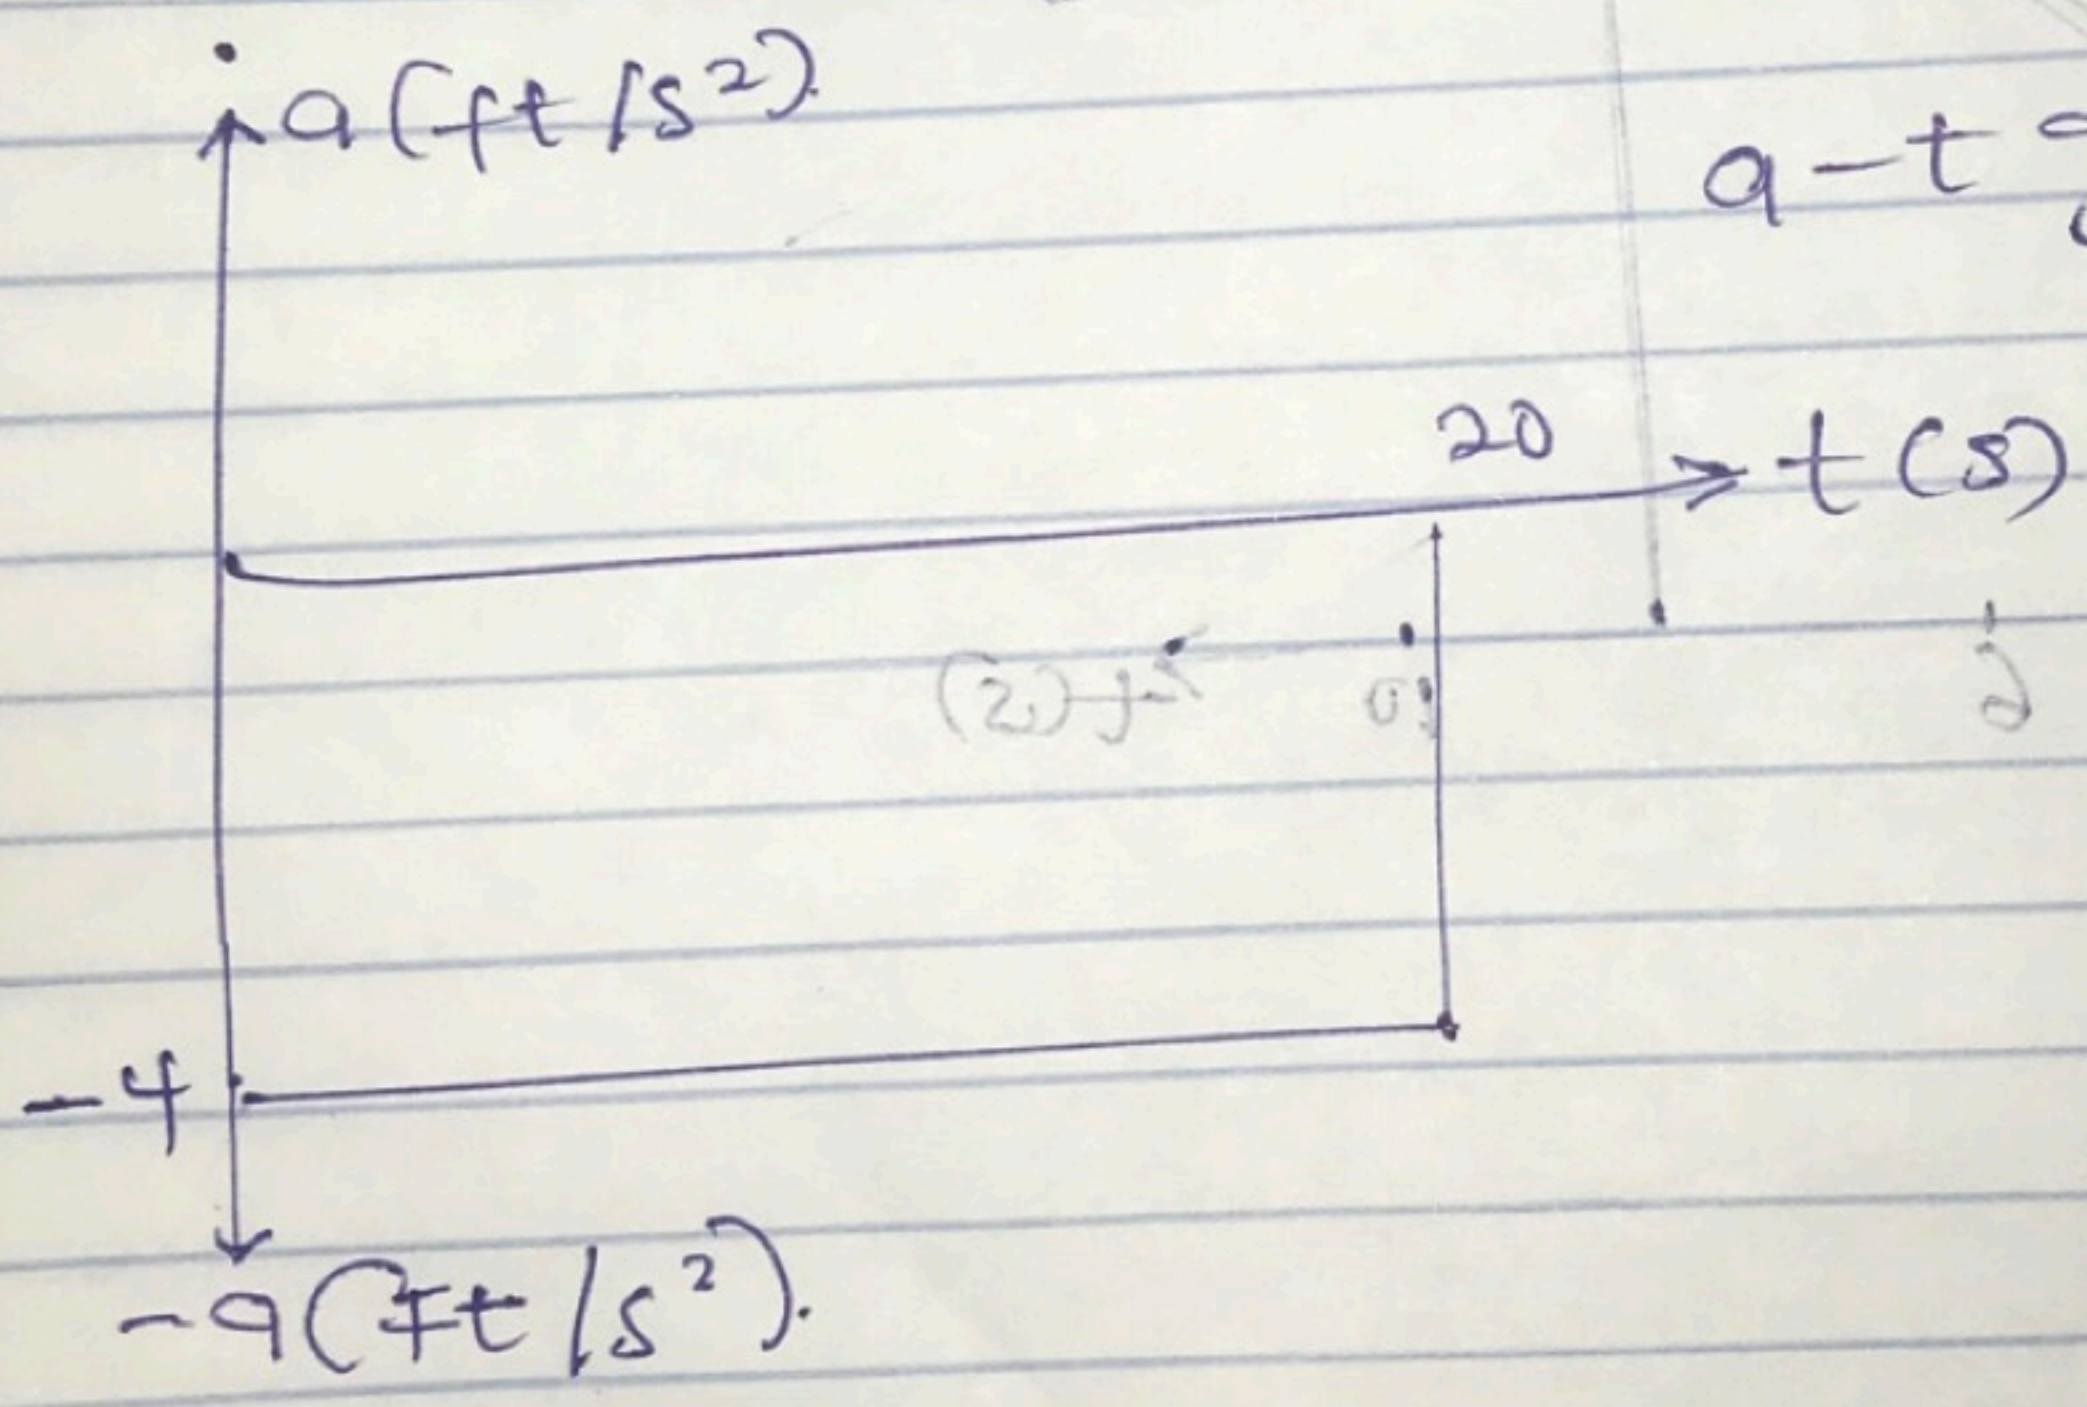 a (ft/s²).
a-t
20
t(s)
-4
-a (ft/s²).